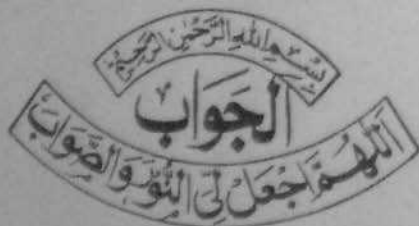 بِسْمِ اللهِ الرَّحْمٰنِ الرَّحِيْمِ
اَلجَوَابُ
اَللّٰهُمَّ اجْعَلْ لِّیْ النُّوْرَ وَالصَّوَابَ